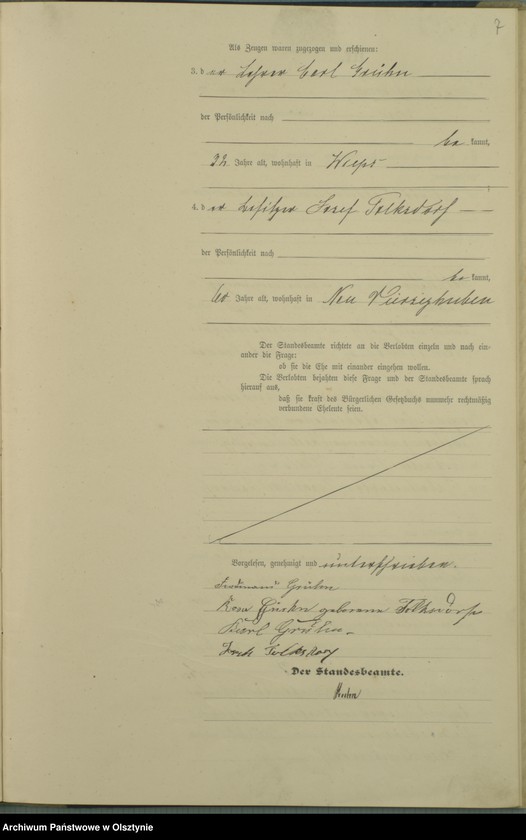 7
Als Zeugen waren zugezogen und erschienen:
3. der Lehrer Carl Grühn
der Persönlichkeit nach
bekannt,
32 Jahre alt, wohnhaft in Wieps
4. der Besitzer Josef Folksdorf
der Persönlichkeit nach
bekannt,
60 Jahre alt, wohnhaft in Neu Vierzighuben
Der Standesbeamte richtete an die Verlobten einzeln und nach ein-
ander die Frage:
ob sie die Ehe mit einander eingehen wollen.
Die Verlobten bejahten diese Frage und der Standesbeamte sprach
hierauf aus,
daß sie kraft des Bürgerlichen Gesetzbuchs nunmehr rechtmäßig
verbundene Eheleute seien.
Vorgelesen, genehmigt und unterschrieben.
Ferdinand Grühn
Grühn geborene Folksdorf
Karl Grühn
Folksdorf
Der Standesbeamte.
Archiwum Państwowe w Olsztynie